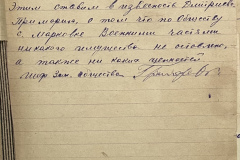 Этим ставим в известность Дмитриева
о том что по Обществу
с. Марковке Военными частями
никакого имущества не оставлено,
а также ни каких ценностей
общества